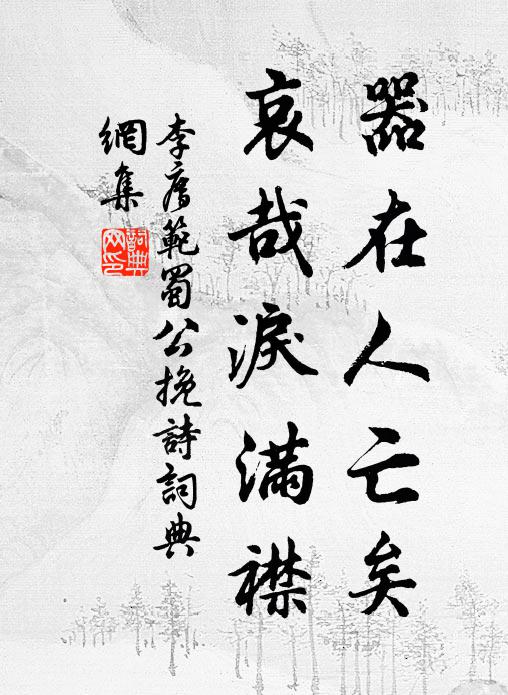 器在人亡矣
哀哉淚滿襟
李廌範蜀公挽詩詞典
網集
詞典網印